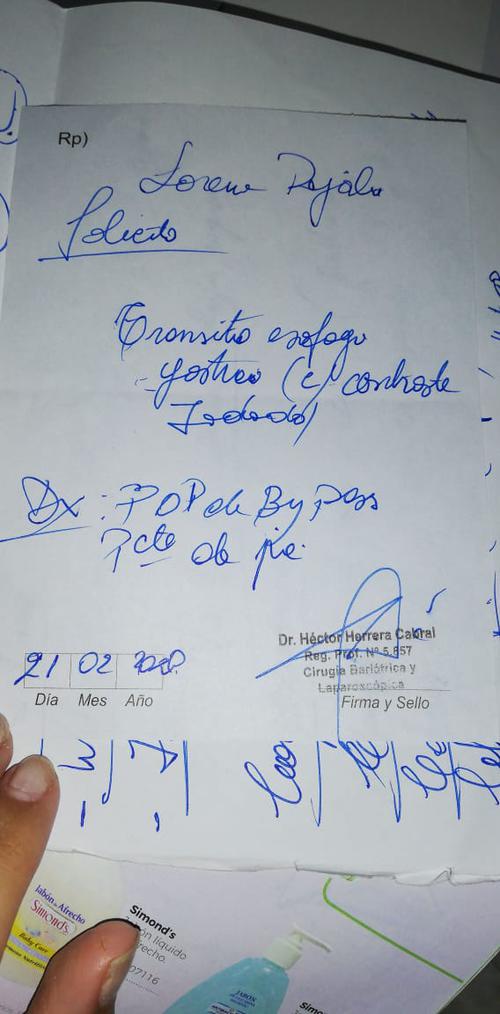 Rp)
Lorena
Solicito
Transito esofago
- gastrico (c/ contraste
Iodado)
Dx: POP de By Pass
Pcte de pie.
Dr. Héctor Herrera Cabral
Reg. Prof. Nº 5.857
Cirugía Bariátrica y
Laparoscópica
21 02 2020
Día Mes Año
Firma y Sello
Jabón de Afrecho
Simond's
Baby Care
Simond's
líquido
recho.
07116
JABON
Simo